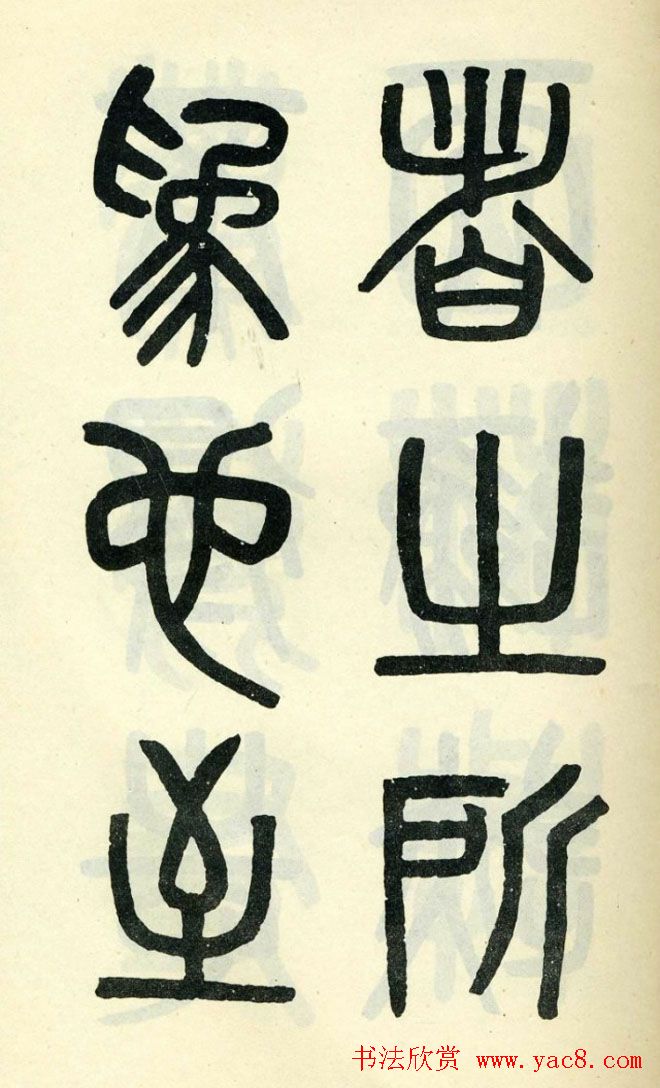 者之所
為也至
书法欣赏 www.yac8.com